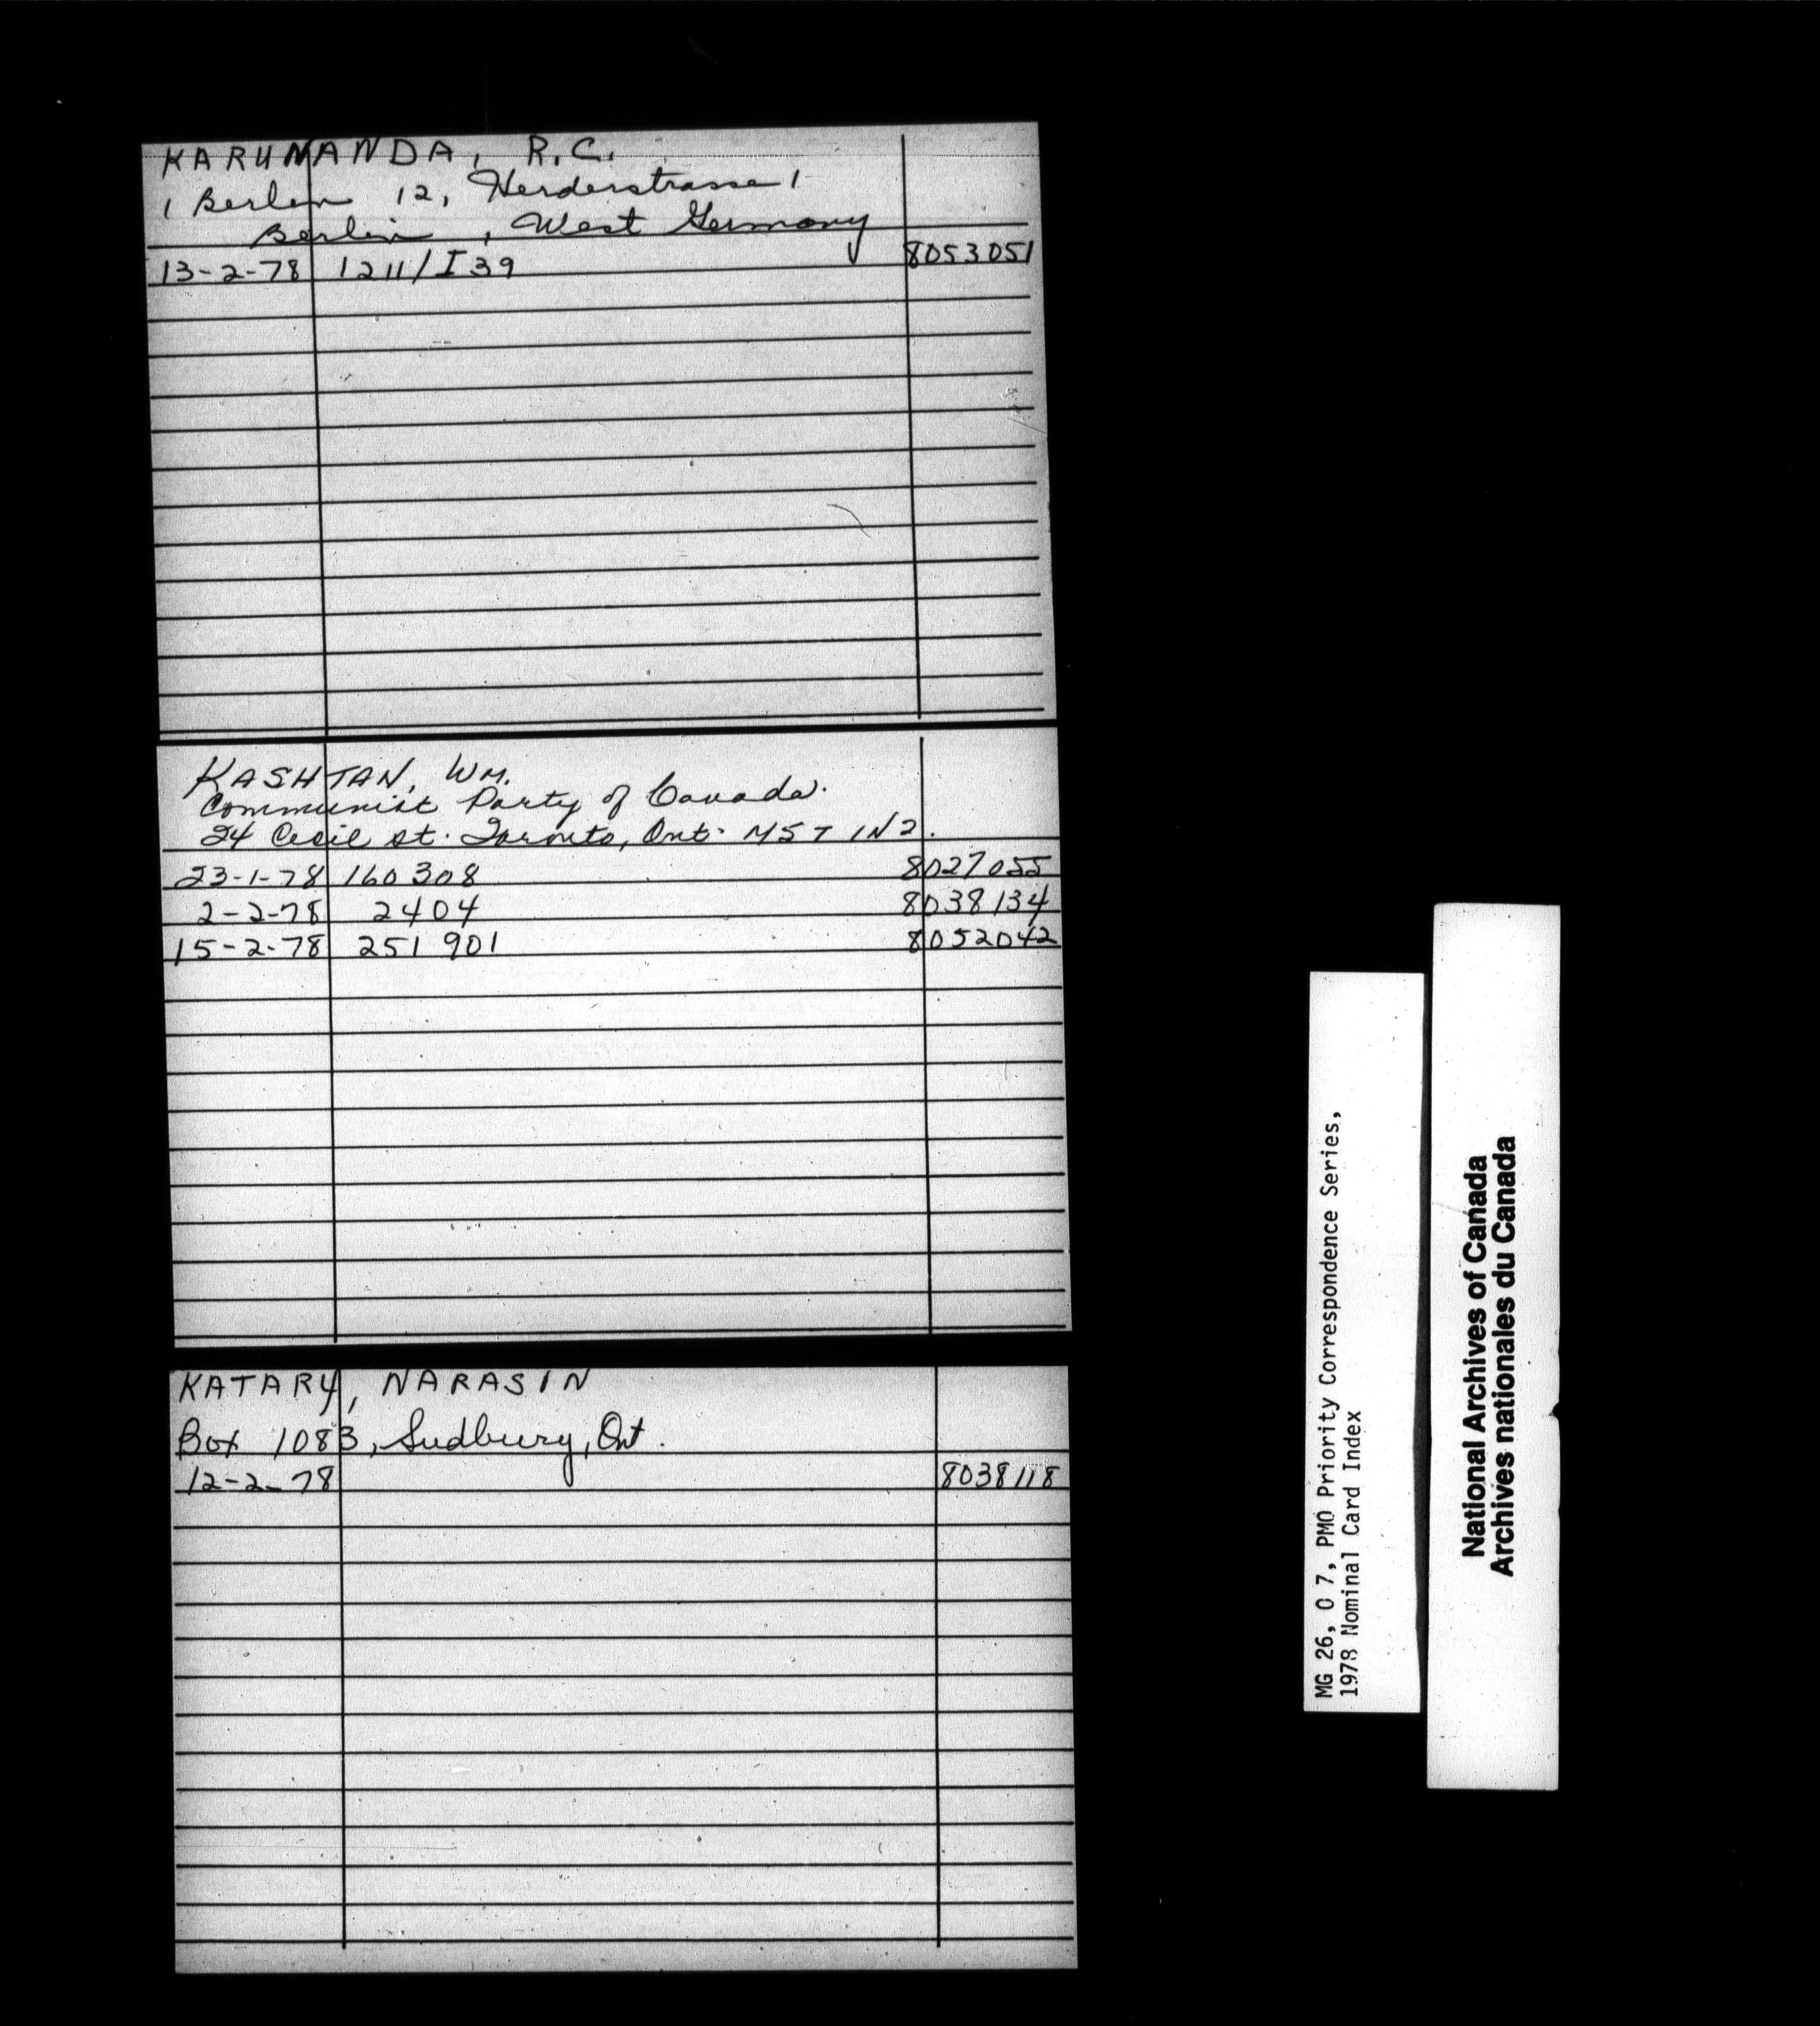 KARUNANDA, R.C.
1 Berlin 12, Herderstrasse 1
Berlin, West Germany
13-2-78 1211/I39 8053051
KASHTAN, WM.
Communist Party of Canada.
24 Cecil St. Toronto, Ont. M5T 1N2.
23-1-78 160308 8027055
2-2-78 2404 8038134
15-2-78 251 901 8052042
KATARY, NARASIN
Box 1083, Sudbury, Ont.
12-2-78 8038118
MG 26, O 7, PMO Priority Correspondence Series,
1978 Nominal Card Index
National Archives of Canada
Archives nationales du Canada